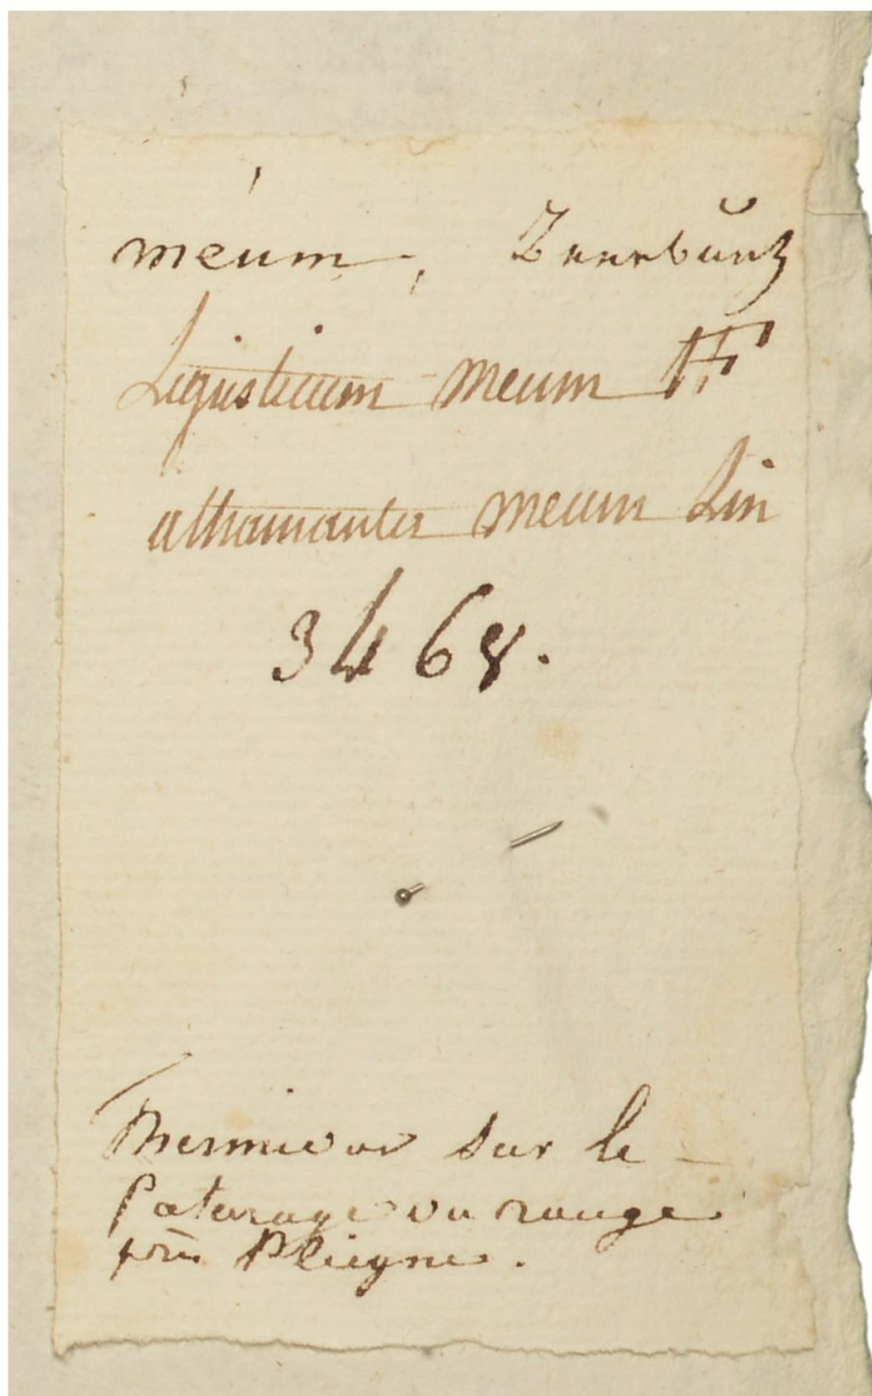 meum, Beerburtz
Ligusticum meum FF
athamanta meum Lin
3468.
sur le
Paturage du rouge
près Pleigne.